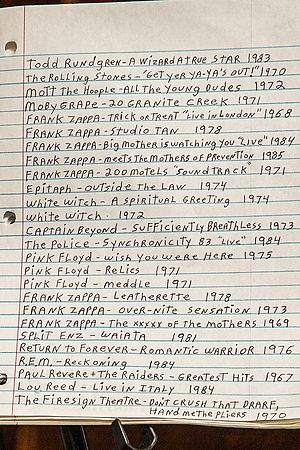 Todd Rundgren - A Wizard A True Star 1983
The Rolling Stones - "Get Yer Ya-Ya's Out!" 1970
Mott The Hoople - All The Young Dudes 1972
Moby Grape - 20 Granite Creek 1971
Frank Zappa - Trick or Treat "Live in London" 1968
Frank Zappa - Studio Tan 1978
Frank Zappa - Big Mother is watching you "Live" 1984
Frank Zappa - meets the mothers of Prevention 1985
Frank Zappa - 200 motels "Soundtrack" 1971
Epitaph - outside the Law 1974
White Witch - A Spiritual Greeting 1974
White Witch - 1972
Captain Beyond - Sufficiently Breathless 1973
The Police - Synchronicity 83 "Live" 1984
Pink Floyd - wish you Were Here 1975
Pink Floyd - Relics 1971
Pink Floyd - meddle 1971
Frank Zappa - Leatherette 1978
Frank Zappa - over-nite Sensation 1973
Frank Zappa - The xxxxx of the mothers 1969
Split Enz - Waiata 1981
Return to Forever - Romantic Warrior 1976
R.E.M. - Reckoning 1984
Paul Revere + The Raiders - Greatest Hits 1967
Lou Reed - Live in Italy 1984
The Firesign Theatre - Don't Crush That Drarf,
Hand me the Pliers 1970